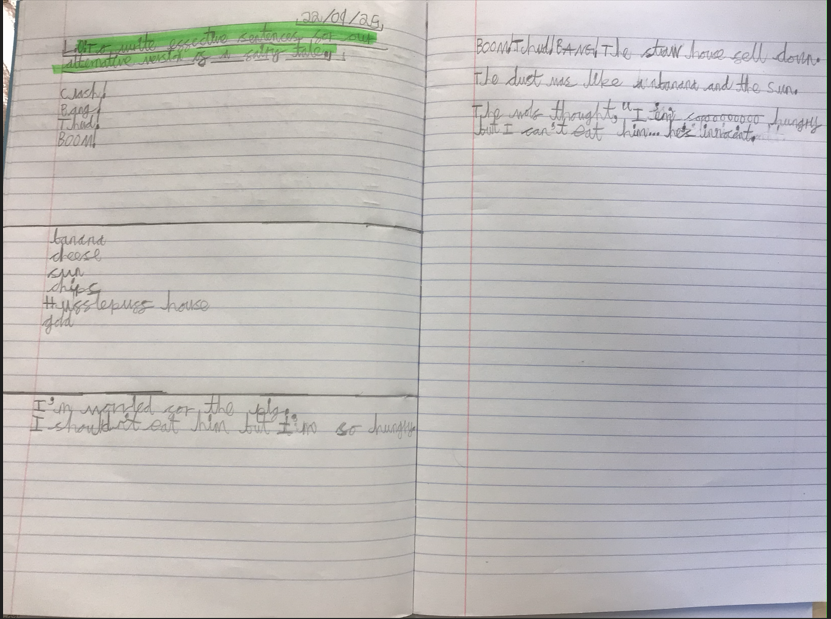 22/01/25
L.I: To write effective sentences for our
alternative version of a fairy tale.
Crash!
Bang!
Thud!
BOOM!
banana
cheese
sun
chips
house
gold
I'm worried for the pig.
I should't eat him but I'm so hungry
BOOM! Thud! BANG! The straw house fell down.
The dust was like a banana and the sun.
The wols thought, "I'm soooooooooo hungry
but I can't eat him... he's